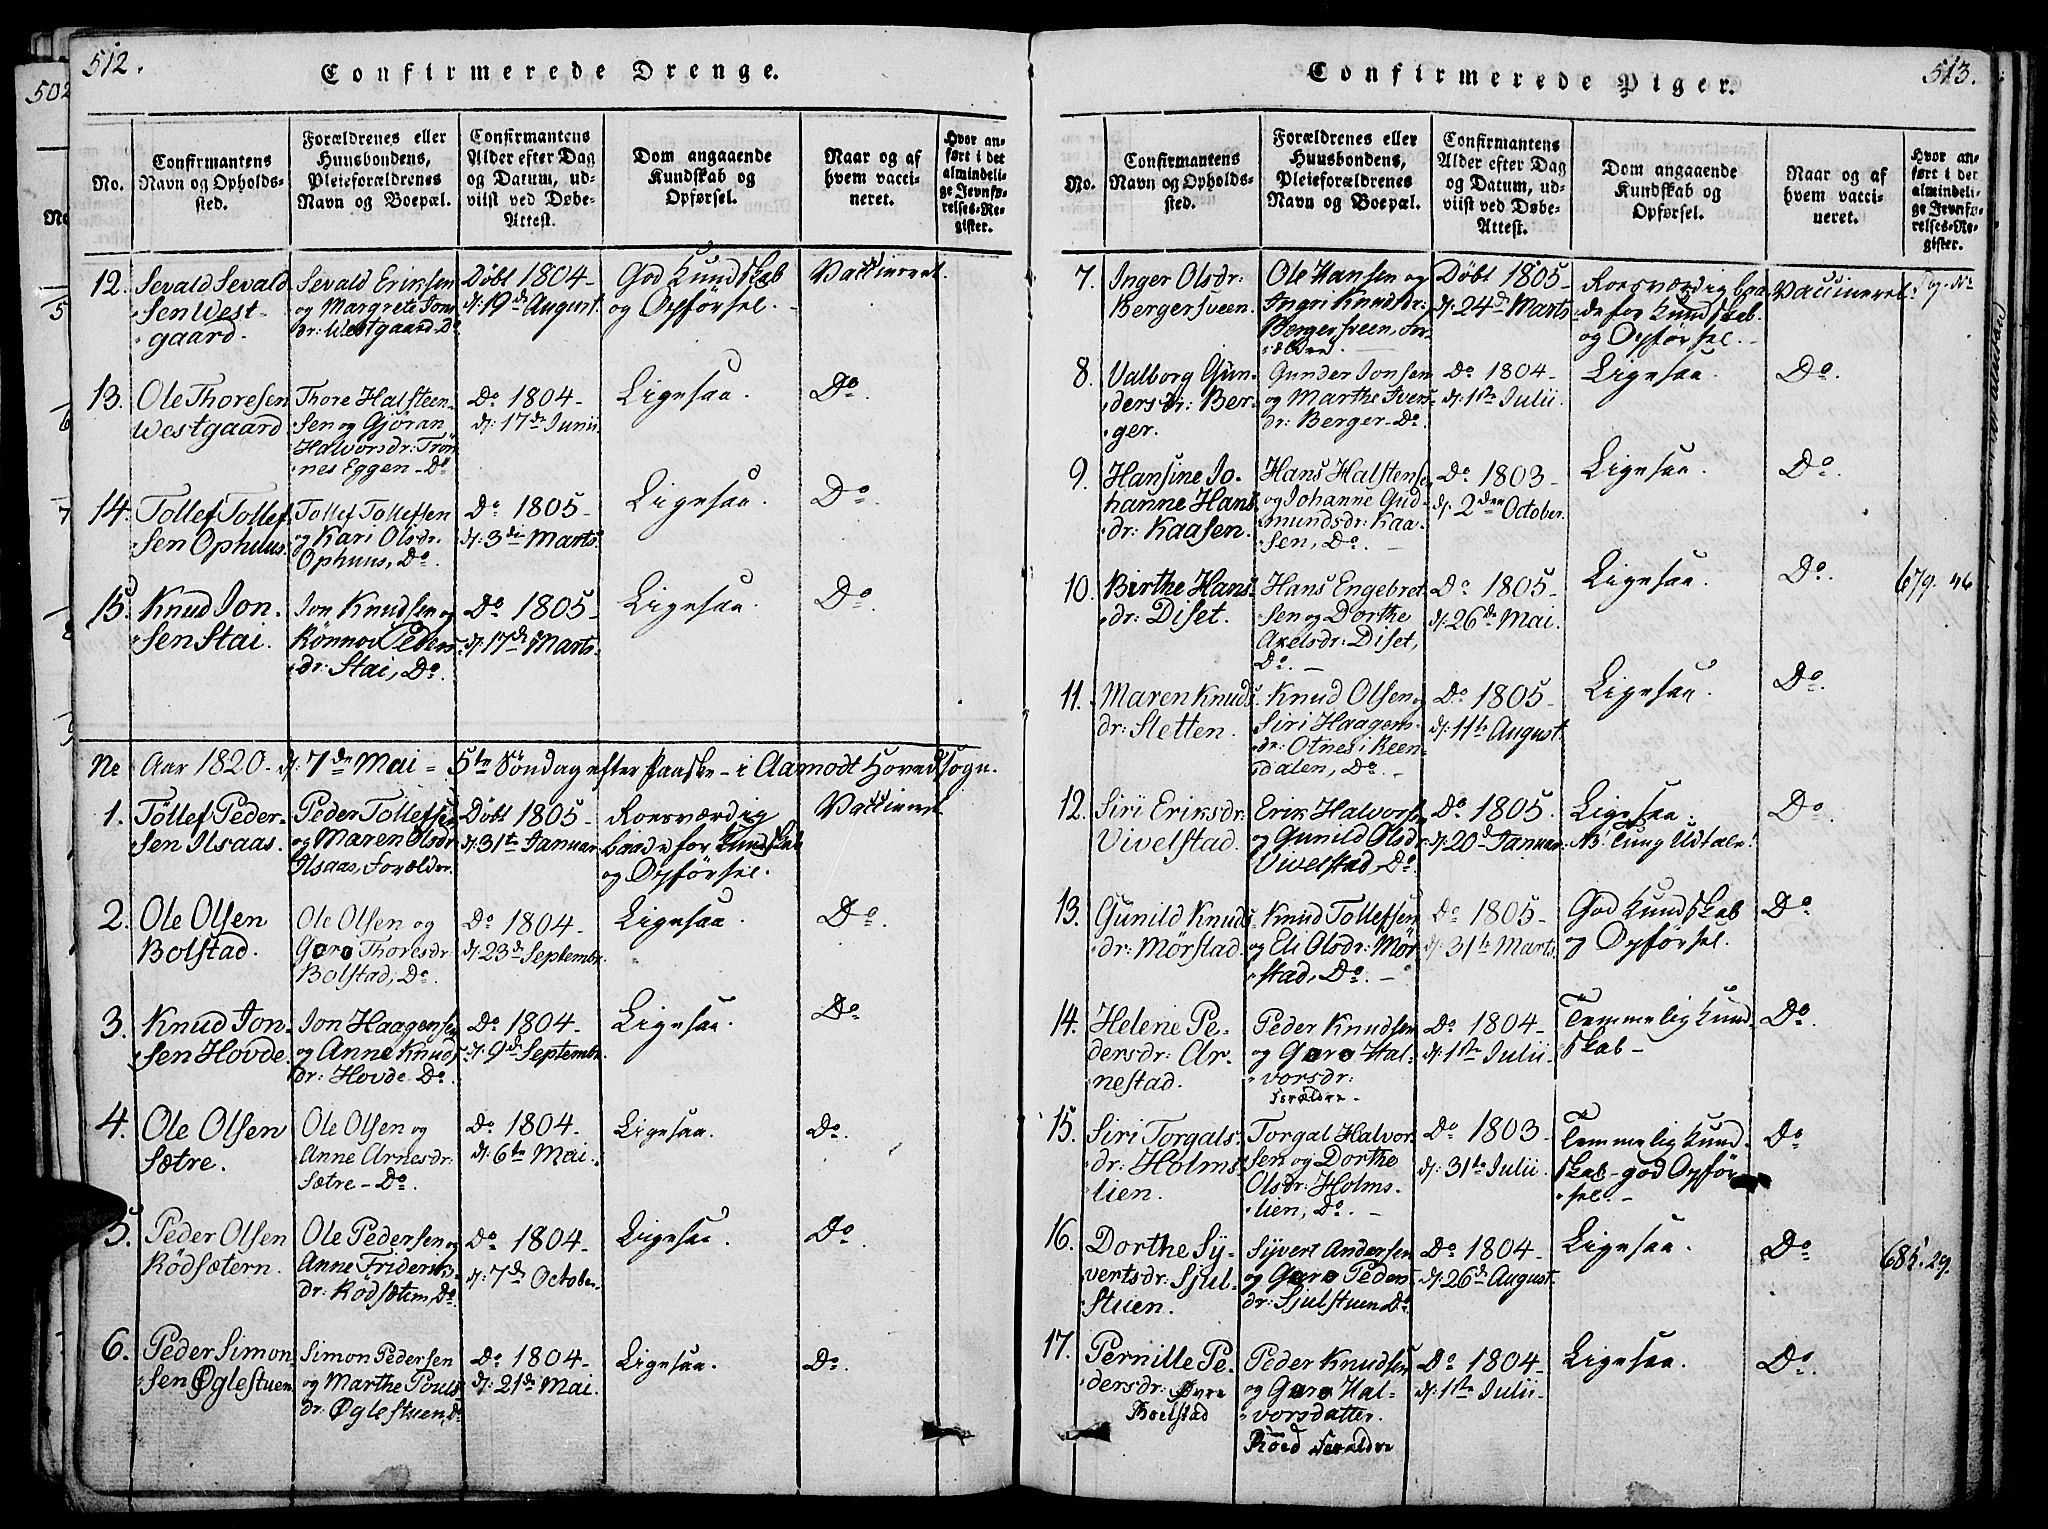 512.
Confirmerede Drenge.
No.
Confirmantens
Navn og Opholds-
sted.
Forældrenes eller
Huusbondens,
Pleieforældrenes
Navn og Boepæl.
Confirmantens
Alder efter Dag
og Datum, ud-
viist ved Døbe-
Attest.
Dom angaaende
Kundskab og
Opførsel.
Naar og af
hvem vacci-
neret.
Hvor an-
ført i det
almindeli-
ge Jevnfø-
relses-Re-
gister.
12. Sevald Sevald
sen West-
gaard.
Sevald Eriksen
og Margrete Jons
dr: Westgaard Do
Døbt 1804
d: 19de August.
God Kundskab
og Opførsel.
Vaccineret.
13. Ole Thoresen
Westgaard
Thore Halsteen-
sen og Gjøran
Halvorsdr: Trøn
nes Eggen - Do
Do 1804
d: 17de Junii.
Ligesaa.
Do
14. Tollef Tollef
sen Ophuus.
Tollef Tollefsen
og Kari Olsdr.
Ophuus, Do.
Do 1805
d: 3die Marts.
Ligesaa.
Do.
15. Knud Jon-
sen Stai.
Jon Knudsen og
Rønnov Peders
dr: Stai, Do.
Do 1805
d: 17de Marts.
Ligesaa.
Do.
No Aar 1820 - d: 7de Mai = 5te Søndag efter Paaske - i Aamodt Hovedsogn.
1. Tollef Peder-
sen Usaas.
Peder Tollefsen
og Maren Olsdr
Usaas, Forældre.
Døbt 1805
d: 31te Januar
Roesværdig
baade for Kundskab
og Opførsel.
Vaccineret
2. Ole Olsen
Bolstad.
Ole Olsen og
Goro Thoresdr
Bolstad, Do.
Do 1804
d: 23de Septembr.
Ligesaa.
Do.
3. Knud Jon-
sen Hovde.
Jon Haagensen
og Anne Knuds
dr: Hovde. Do.
Do 1804
d: 9de Septembr.
Ligesaa.
Do
4. Ole Olsen
Sætre.
Ole Olsen og
Anne Arnesdr:
Sætre - Do.
Do 1804
d: 6te Mai.
Ligesaa.
Do.
5. Peder Olsen
Rødsætern.
Ole Pedersen og
Anne Friderik
dr: Rødsætern, Do.
Do 1804
d: 7de October.
Ligesaa.
Do
6. Peder Simon
sen Øglestuen
Simon Pedersen
og Marthe Pouls
dr: Øglestuen, Do
Do 1804
d: 21de Mai.
Ligesaa.
Do.
513.
Confirmerede Piger.
No.
Confirmantens
Navn og Opholds-
sted.
Forældrenes eller
Huusbondens,
Pleieforældrenes
Navn og Boepæl.
Confirmantens
Alder efter Dag
og Datum, ud-
viist ved Døbe-
Attest.
Dom angaaende
Kundskab og
Opførsel.
Naar og af
hvem vacci-
neret.
Hvor an-
ført i det
almindeli-
ge Jevnfø-
relses-Re-
gister.
7. Inger Olsdr:
Bergersveen.
Ole Hansen og
Inger Knudsdr:
Bergersveen, For
ældre.
Døbt 1805
d: 24de Marts
Roesværdig baa
de for Kundskab
og Opførsel.
Vaccineret.
8. Valborg Gun-
dersdr: Ber-
ger.
Gunder Jonsen
og Marthe Ivers
dr: Berger - Do.
Do 1804
d: 1ste Julii.
Ligesaa.
Do.
9. Hansine Jo-
hanne Hans
dr: Kaasen.
Hans Halstense
og Johanne Gud
mundsdr: Kaa-
sen, Do.
Do 1803
d: 2den October.
Ligesaa.
Do.
10. Birthe Hans
dr: Diset.
Hans Engebret
sen og Dorthe
Axelsdr: Diset,
Do.
Do 1805
d: 26de Mai.
Ligesaa.
Do.
679. 46
11. Maren Knuds
dr: Sletten.
Knud Olsen og
Siri Haagens-
dr: Otnes i Reen-
dalen, Do.
Do 1805
d: 11te August.
Ligesaa.
Do.
12. Siri Eriksdr.
Vivelstad.
Erik Halvorsen
og Gunild Olsdr
Vivelstad, Do
Do 1805.
d: 20de Januar.
Ligesaa.
NB: Tung Udtale!
Do
13. Gunild Knuds
dr: Mørstad.
Knud Tollefsen
og Eli Olsdr: Mør
stad, Do.
Do 1805
d: 31te Marts.
God Kundskab
og Opførsel.
Do
14. Helene Pe-
dersdr: Ar-
nestad.
Peder Knudsen
og Goro Hal-
vorsdr:
Forældre.
Do 1804
d: 1ste Julii.
Temmelig Kund
skab
Do.
15. Siri Torgals-
dr: Holms
lien.
Torgal Halvor
sen og Dorthe
Olsdr: Holms-
lien, Do.
Do 1803
d: 31te Julii.
Temmelig Kund-
skab - god Opfør
sel.
Do
16. Dorthe Sÿ-
vertsdr: Sjul-
stuen.
Sÿvert Andersen
og Goro Peders
dr: Sjulstuen Do
Do 1804
d: 26de August.
Ligesaa.
Do
685. 29.
17. Pernille Pe-
dersdr: Øvre
Boelstad
Peder Knudsen
og Goro Hal-
vorsdatter.
Forældre
Do 1804
d: 1ste Julii
Ligesaa.
Do
502
No
5
6
7
8